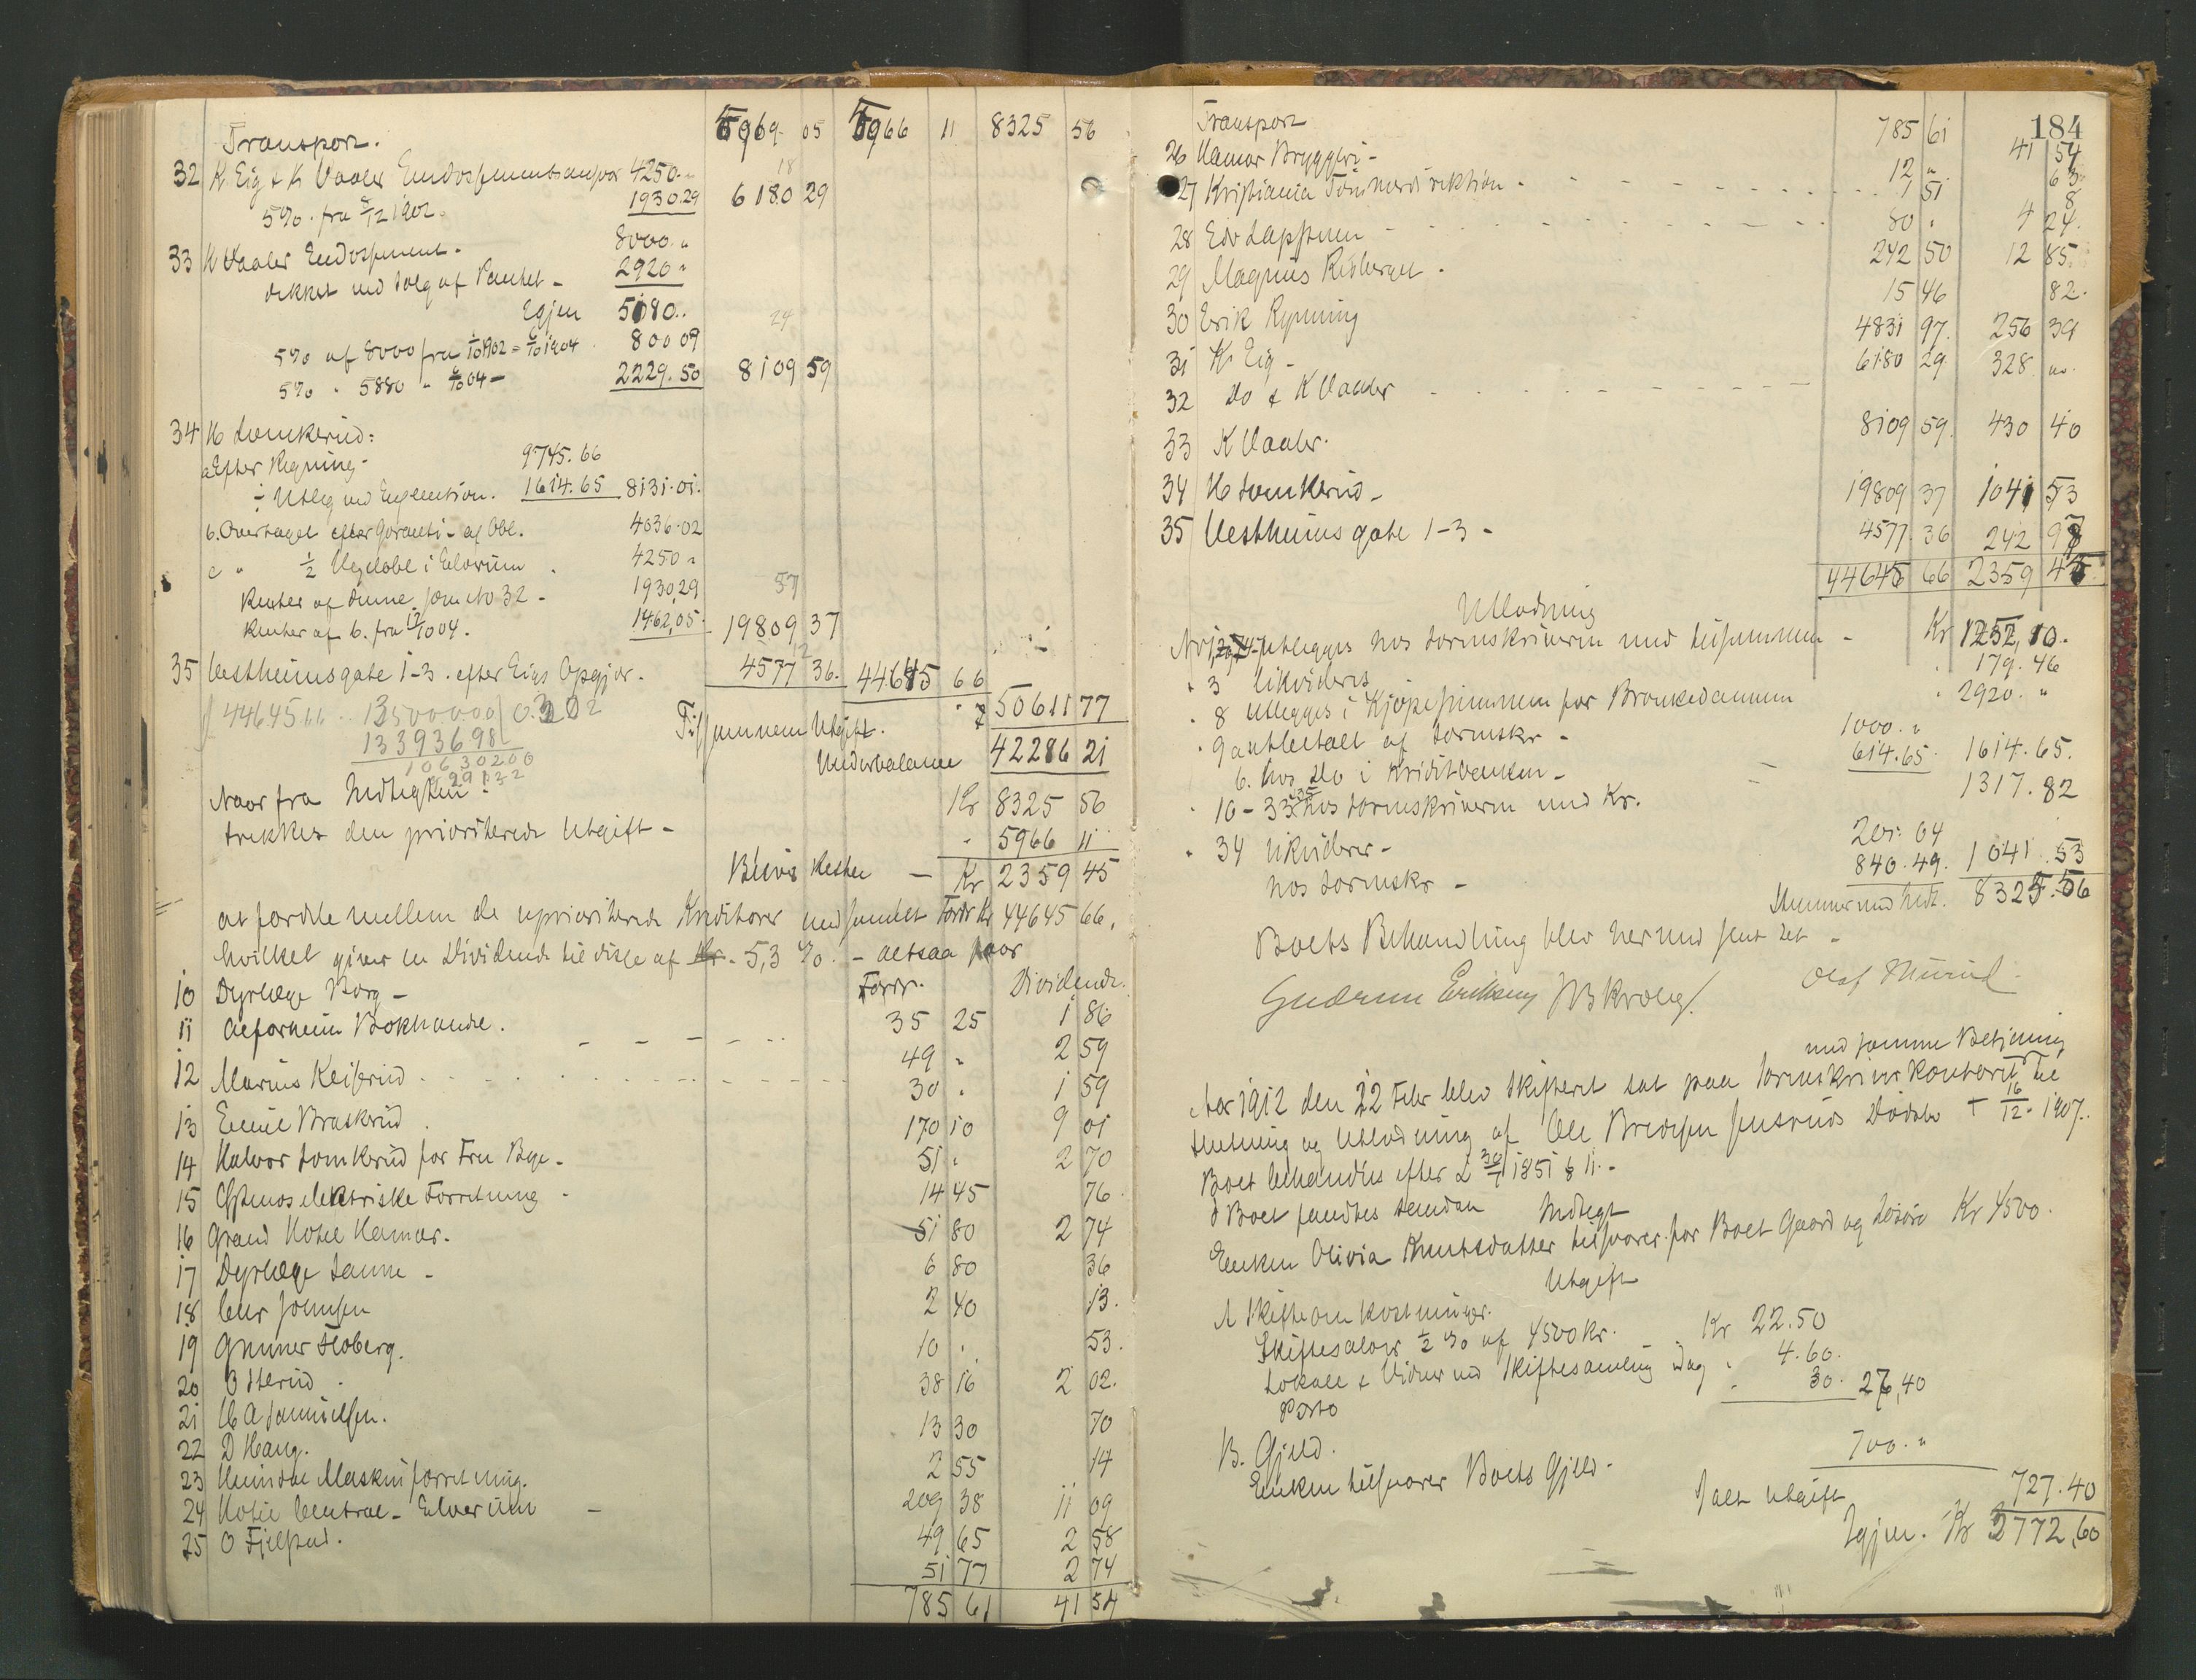 Transport. 5969 05 5966 11 8325 56
32 K Eig & K Vaaler Endossementsansvar 4250.-
5% fra 5/12 1902. 1930.29 6180 29
33 K Vaaler Endossement. 8000 "
dekket ved Salg af Pantet - 2920 "
Egjen 5080..
5% af 8000 fra 1/10 1902 - 6/10 1904 800 09
5% " 5880 " 6/10 04 - 2229.50 8109 59
34 H Lomkerud:
a Efter Regning - 9745.66
÷ Utlæg ved Execution. 1614.65 8131.01.
b. Overtaget efter Garanti - af Obl. 4036.02
c " ½ Vexelobl i Elverum 4250 "
Renter af denne som No 32 - 1930,29
Renter af b. fra 12/10 04. 1462,05. 19809 37
35 Vestheimsgate 1-3. efter Eigs Opgjør. 4577 36. 44645 66
44645 66 13500000 0.302
13393698
10630200
Tilsammen Utgift. 50611 77
Underbalance 42286 21
Naar fra Indtægten Kr 8325 56
trækkes den prioriterede Utgift - " 5966 11
Blivis Resten - Kr 2359 45
at fordele mellem de uprioriterede Kreditorer med samlet Fordr Kr 44645 66.
hvilket giver en Dividende til disse af Kr. 5,3 %. - altsaa paa
Fordr. Dividende.
10 Dyrlæge Borg - 35 25 1 86
11 Alfarheim Bokhandel. 49 " 2 59
12 Marius Keiserud 30 " 1 59
13 Emil Braskerud 170 10 9 01
14 Halvor Lomkerud for Fru Bye - 51 " 2 70
15 elektriske Forretning - 14 45 76
16 Grand Hotel Hamar. 51 80 2 74
17 Dyrlæge Lanne - 6 80 36
18 Johnsen 2 40 13.
19 Gunner Floberg. 10 " 53.
20 O Sterud 38 16 2 02.
21 A Samuelsen. 13 30 70
22 D Haug. 2 55 14
23 Heimdal Maskinforretning. 209 38 11 09
24 Hotel Central - Elverum - 49 65 2 58
25 O Fjelstad. 51 77 2 74
785 61 41 54
184
Transport 785 61 41 54
26 Hamar Bryggeri - 12 " 63
27 Kristiania Tømmerdirektion - 1 51 8
28 Edv 80 " 4 24.
29 Magnus Risberget. 242 50 12 85.
30 Erik Rypning 15 46 82.
31 K Eig - 4831 97. 256 39
32 Do & K Vaaler 6180 29 328 "
33 K Vaaler. 8109 59. 430 40
34 H Lomkerud - 19809 37 1041 53
35 Vestheimsgate 1-3 - 4577 36 242 98
44645 66 2359 45
Utlodning
No 1, 2, 4-7 utlægges hos Sorenskriveren med tilsammen - Kr 1252,10.
" 3 likvideres " 179.46
" 8 utlægges i Kjøpesummen for " 2920. "
" 9 a utbetalt af Sorenskr - 1000. "
b. hos Do i Kreditbanken - 614.65. 1614.65.
" 10 - 33, 35 hos Sorenskriveren med Kr. 1317.82
" 34 likviderer - 201.04
hos Sorenskr - 840.49. 1041.53
Stemmer med Indt. 8325.56
Boets Behandling blev hermed sluttet -
Gudrun Eriksen Olaf

Aar 1912 den 22 Febr blev Skifteret sat paa Sorenskriverkontoret med samme Betjening til
Slutning og Utlodning af Ole Bredesen Dødsbo † 16/12. 1907.
Boet behandles efter L 30/7 1851 § 11.-
I Boet fandtes saadan Indtægt
Enken Olivia Knutsdatter tilsvarer for Boet Gaard og Løsøre Kr 4500.
Utgift
A Skifteomkostninger.
Skiftesalær ½ % af 4500 kr. Kr 22.50
Lokale & Vidner ved Skiftesamling idag " 4.60.
Porto " 30. 27,40
B. Gjæld.
Enken tilsvarer Boets Gjæld. 700. "
Ialt Utgift 727.40
Igjen. Kr 3772,60